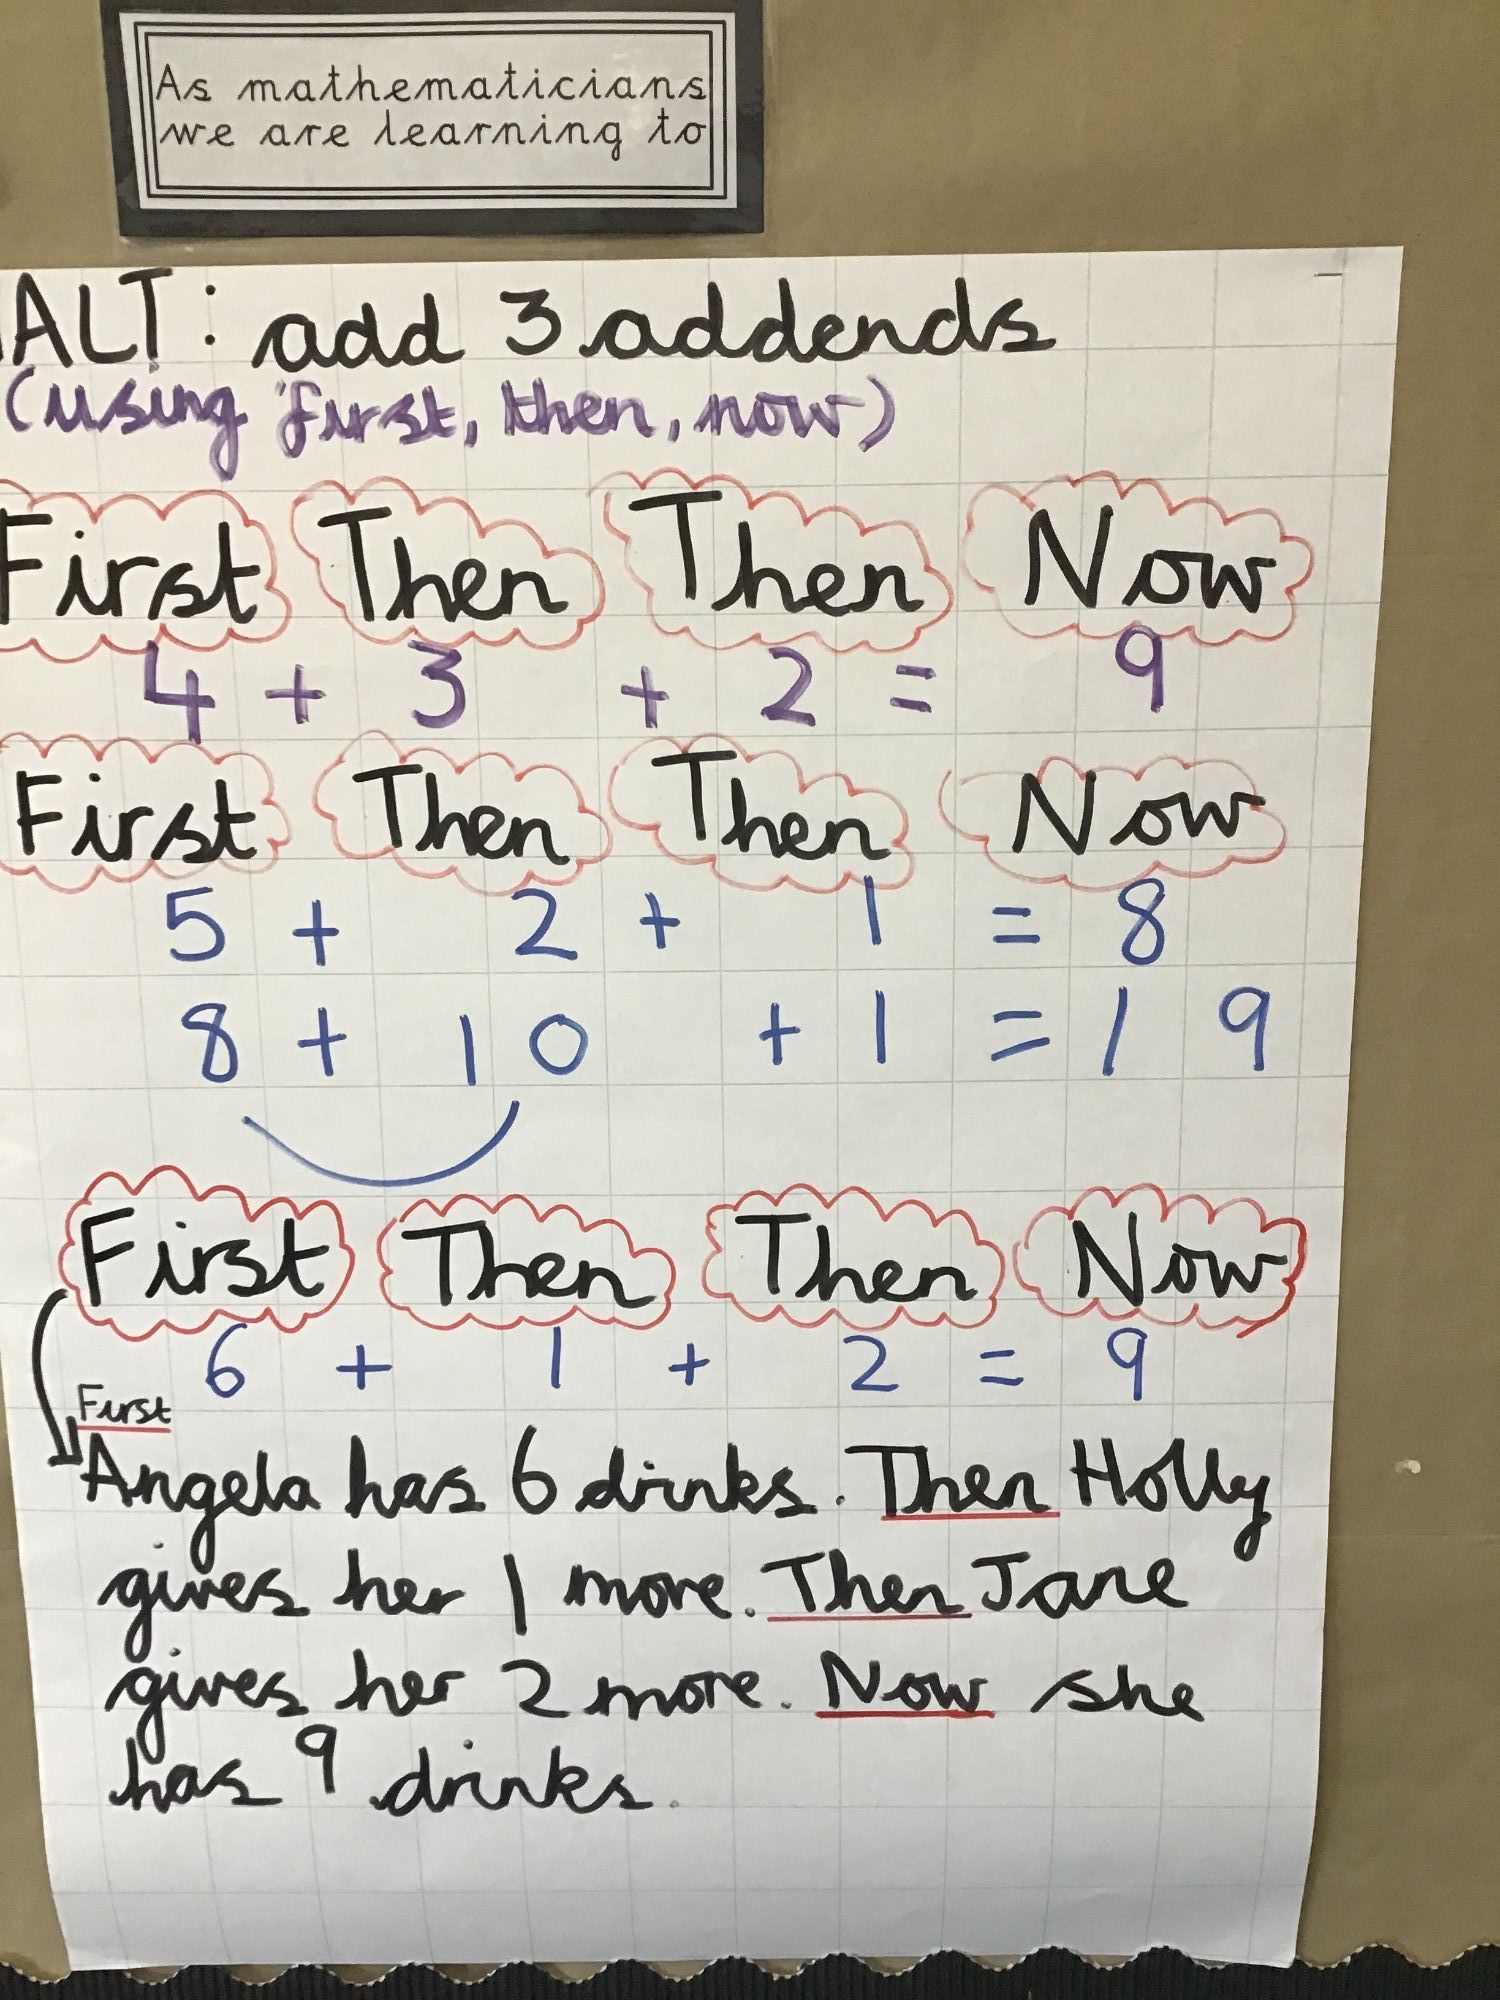 As mathematicians
we are learning to
ALT: add 3 addends
(using first, then, now)
First Then Then Now
4 + 3 + 2 = 9
First Then Then Now
5 + 2 + 1 = 8
8 + 10 + 1 = 19
First Then Then Now
6 + 1 + 2 = 9
First
Angela has 6 drinks. Then Holly
gives her 1 more. Then Jane
gives her 2 more. Now she
has 9 drinks.